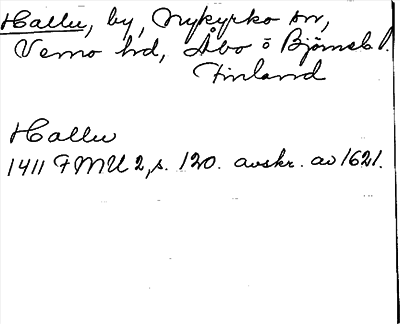 Hallu, by, Nykyrko sn,
Vemo hd, Åbo o Björneb l.
Finland
Hallu
1411 FMU 2, s. 120. avskr. av 1621.